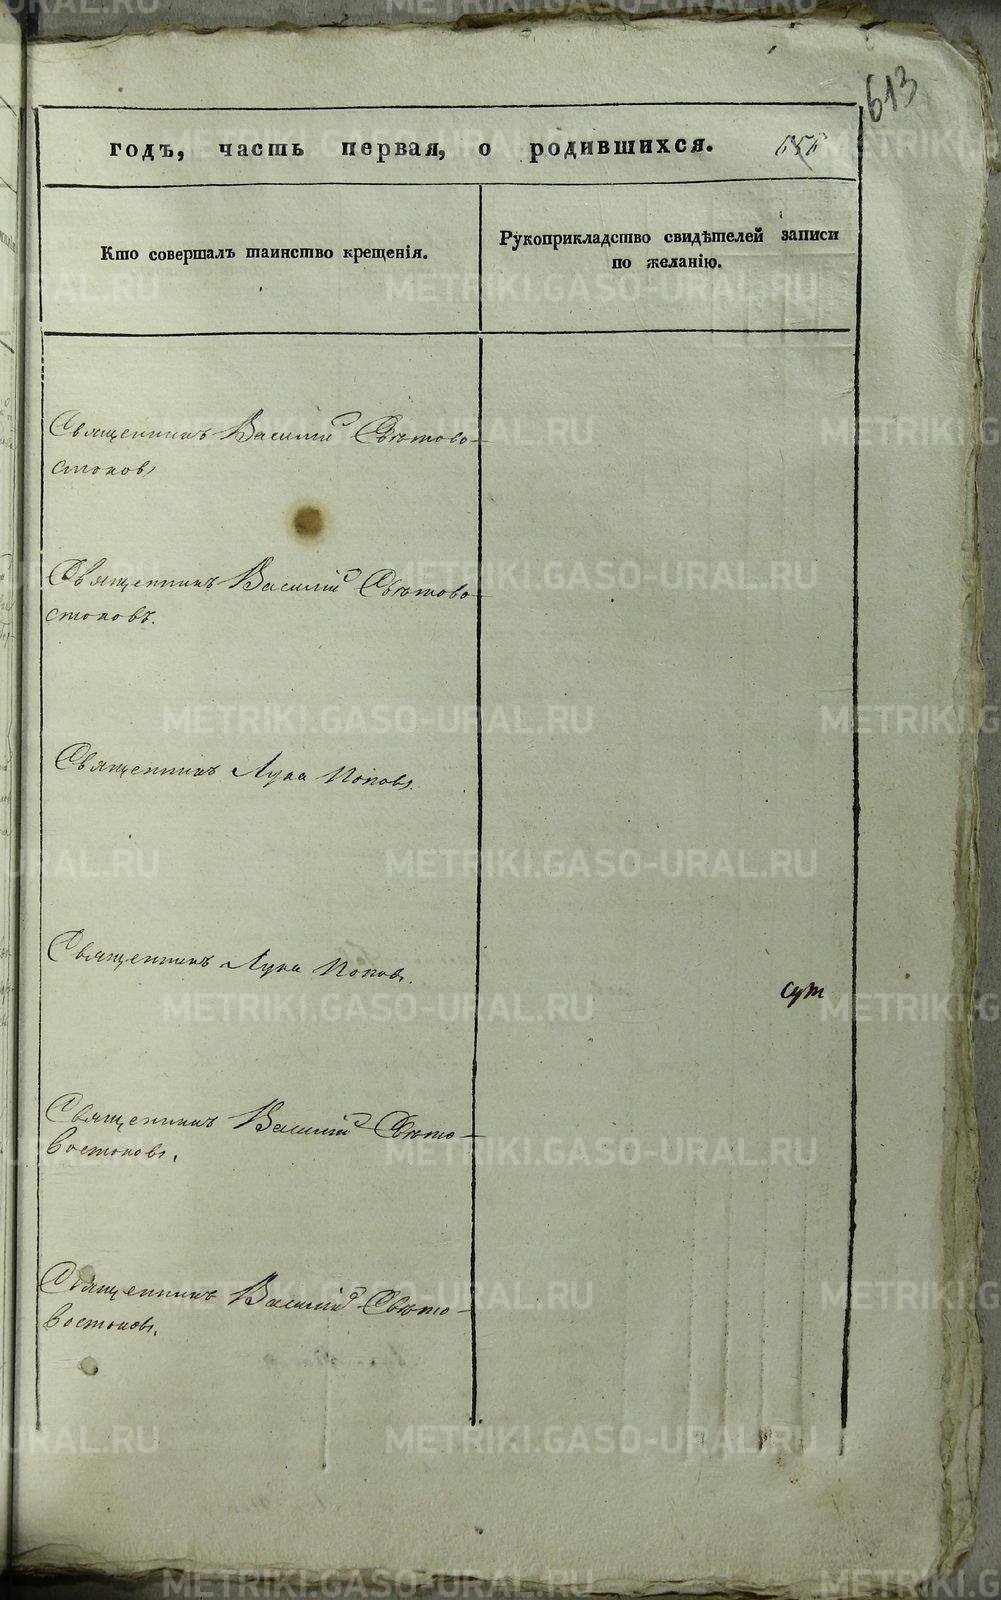 613
годъ, часть первая, о родившихся.
Кто совершалъ таинство крещенія.
Рукоприкладство свидѣтелей записи
по желанію.
Священникъ Василій Свѣтово-
стоковъ
Священникъ Василій Свѣтово-
стоковъ.
Священникъ Лука Поповъ.
Священникъ Лука Поповъ.
Священникъ Василій Свѣто-
востоковъ.
Священникъ Василій Свѣто-
востоковъ.
METRIKI.GASO-URAL.RU